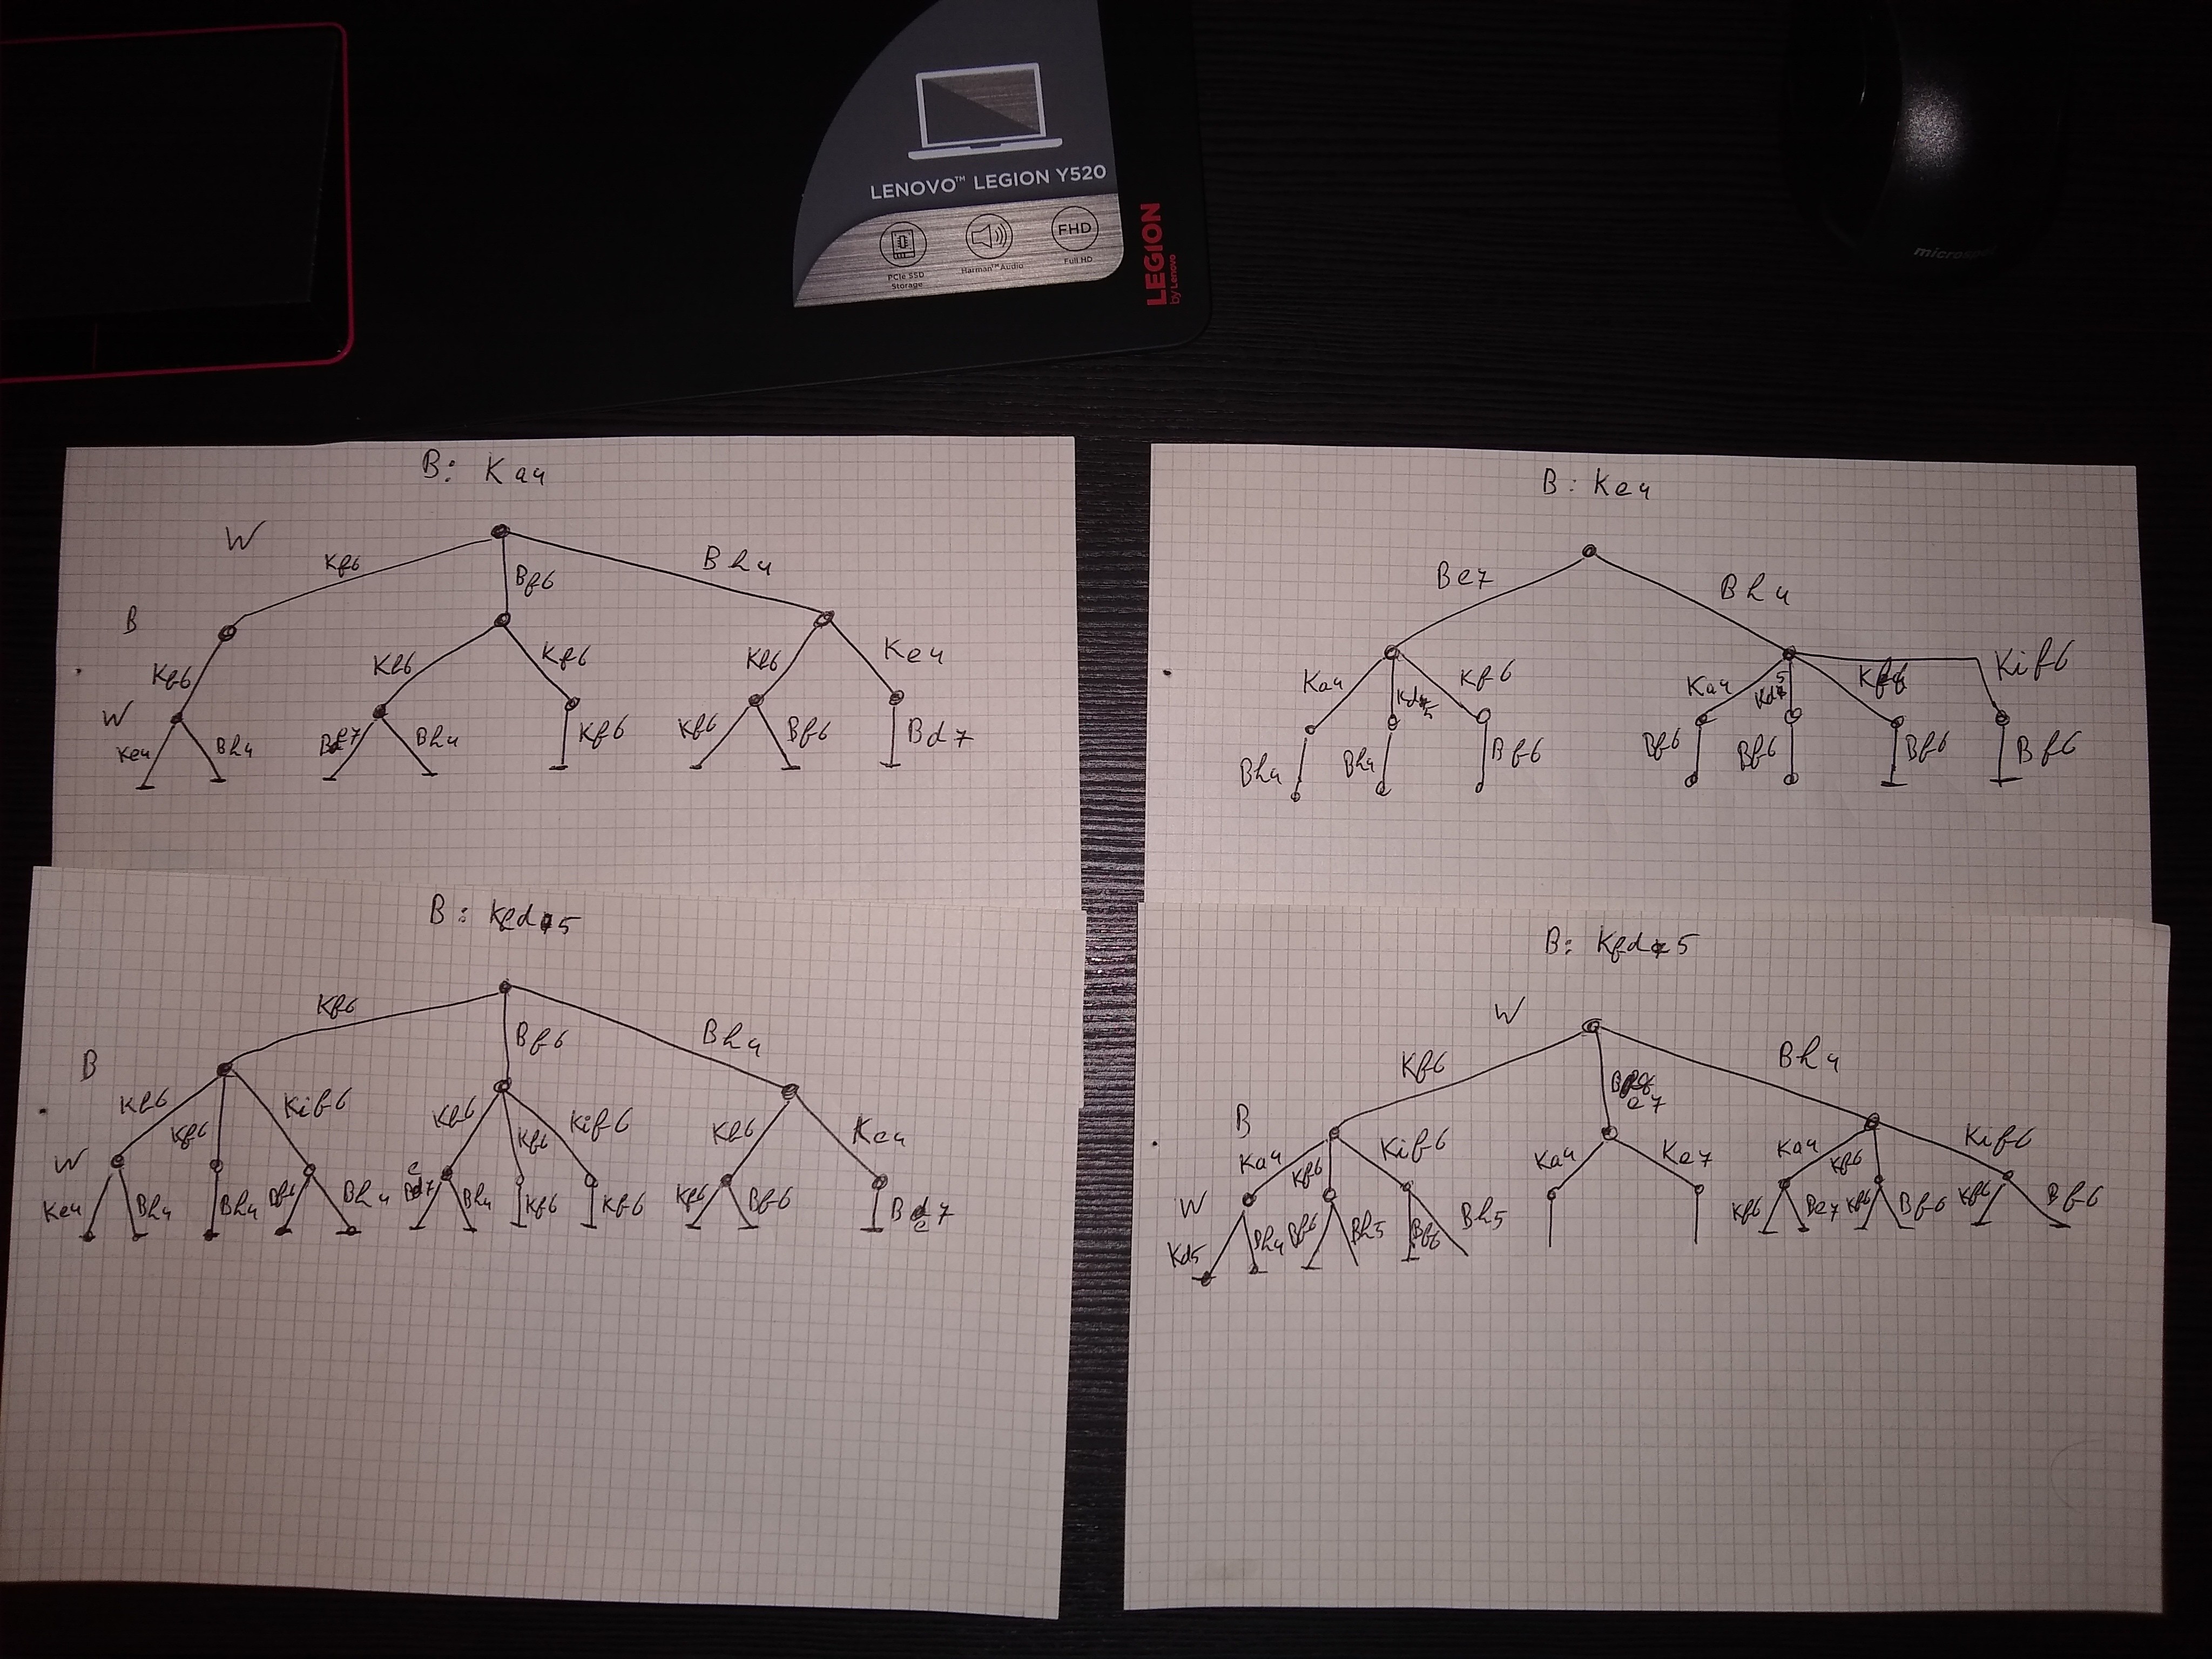 LENOVO™ LEGION Y520
FHD
PCIe SSD Storage
Harman™ Audio
Full HD
LEGION
by Lenovo
B: Ka4
W
Kf6
Bf6
Bh4
B
Kf6
Kf6
Kf6
Kf6
Ke4
W
Ke4
Bh4
Bh4
Kf6
Kf6
Bf6
Bd7
B: Ke4
Be7
Bh4
Ka4
Kf6
Ka4
Kd5
Kif6
Bh4
Bh4
Bf6
Bf6
Bf6
Bf6
Bf6
B: Ked5
Kf6
Bf6
Bh4
B
Kf6
Kf6
Kif6
Kf6
Kf6
Kif6
Kf6
Ke4
W
Ke4
Bh4
Bh4
Bf6
Bh4
Bh4
Kf6
Kf6
Kf6
Bf6
Be7
B: Kfd5
W
Kf6
e7
Bh4
B
Ka4
Kf6
Kif6
Ka4
Ke7
Ka4
Kf6
Kif6
W
Kd5
Bh4
Bf6
Bh5
Bf6
Bh5
Kf6
Be7
Kf6
Bf6
Kf6
Bf6